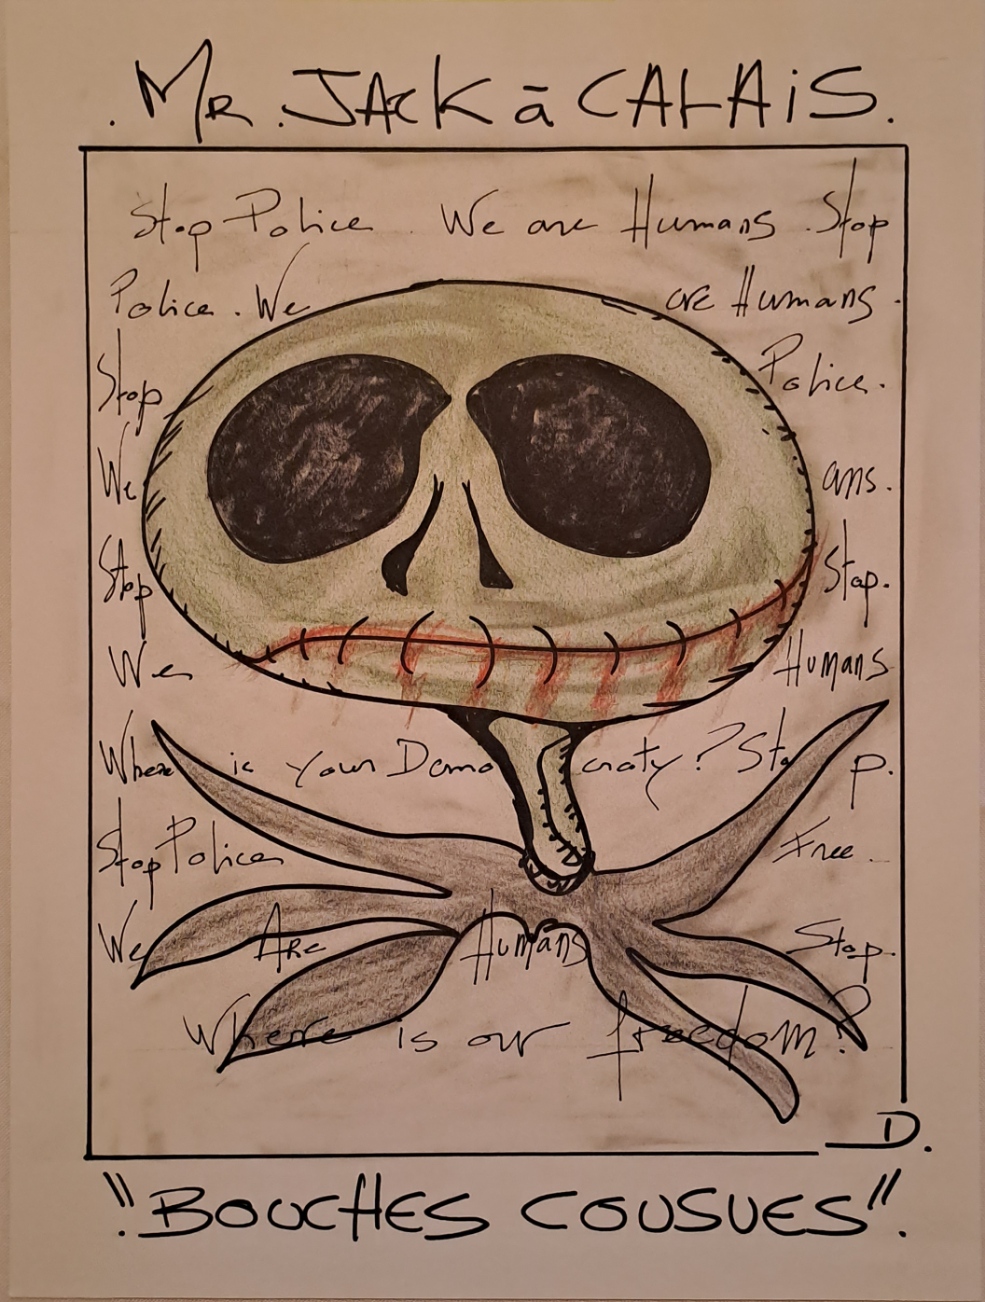 . MR. JACK à CALAIS.
Stop Police. We are Humans. Stop
Police. We are Humans.
Stop Police.
We ans.
Stop Stop.
We Humans
Where is your Demo craty? Sto p.
Stop Police Free.
We Are Humans Stop.
Where is our freedom?
D.
"BOUCHES COUSUES".